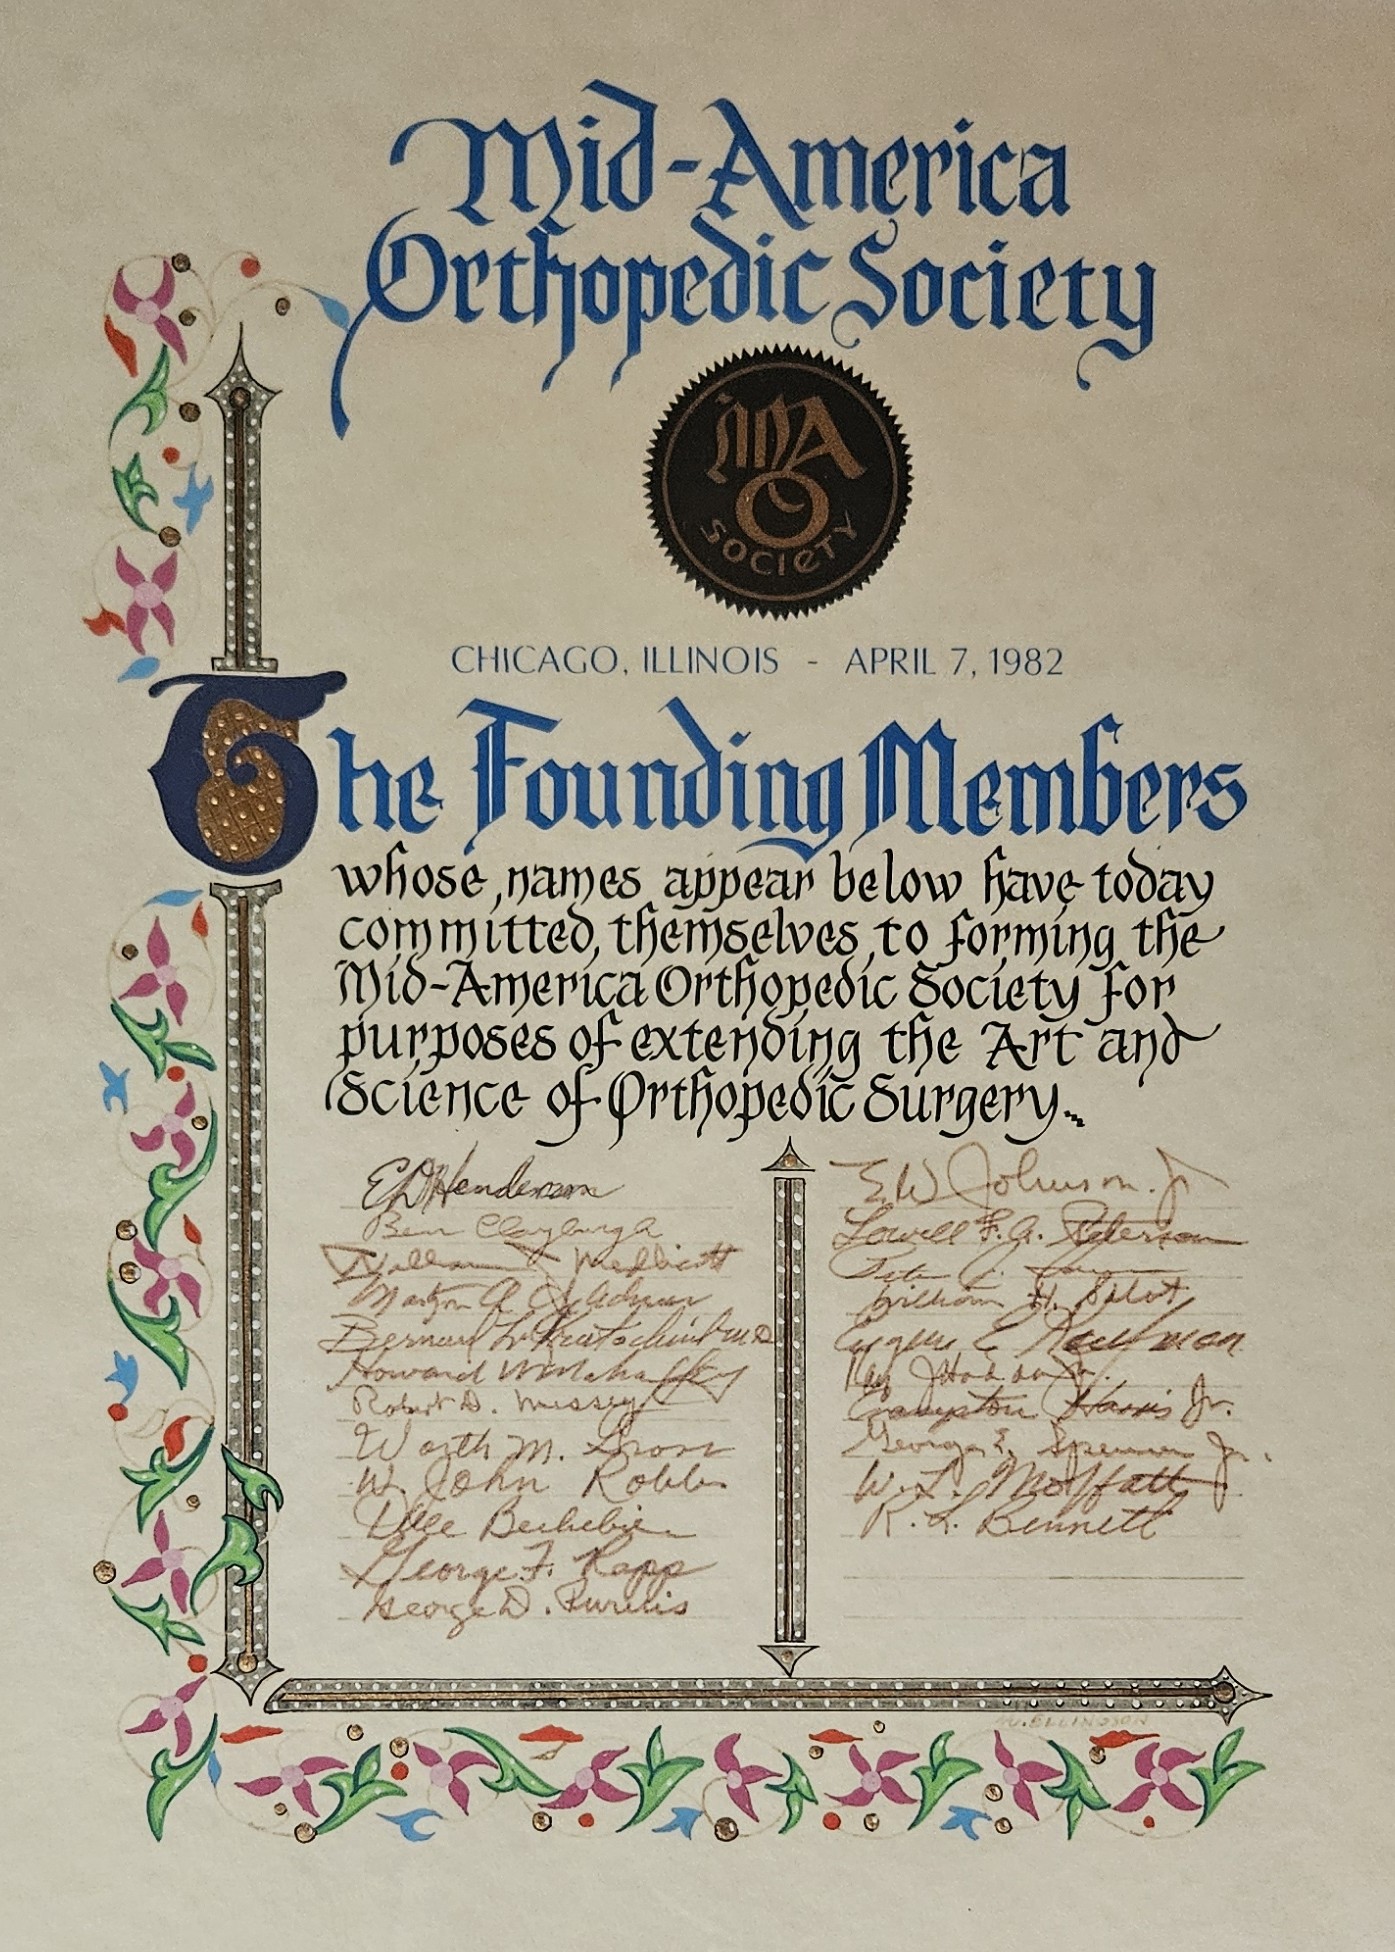 Mid-America
Orthopedic Society
MAO
SOCIETY
CHICAGO, ILLINOIS - APRIL 7, 1982
The Founding Members
whose names appear below have today
committed themselves to forming the
Mid-America Orthopedic Society for
purposes of extending the Art and
Science of Orthopedic Surgery.
ED Henderson
Ben Clayburgh
William Medlicott
Bernard L.
Howard
Robert D. Massey
Worth M. Gross
W. John Robb
George F. Rapp
George D.
E.W. Johnson. Jr
Lowell F.A. Peterson
William H.
Eugene E. Kaufman
Crampton Harris Jr.
George E. Spencer Jr.
W. L. Moffatt Jr
R. L. Bennett
M. ELLINGSON